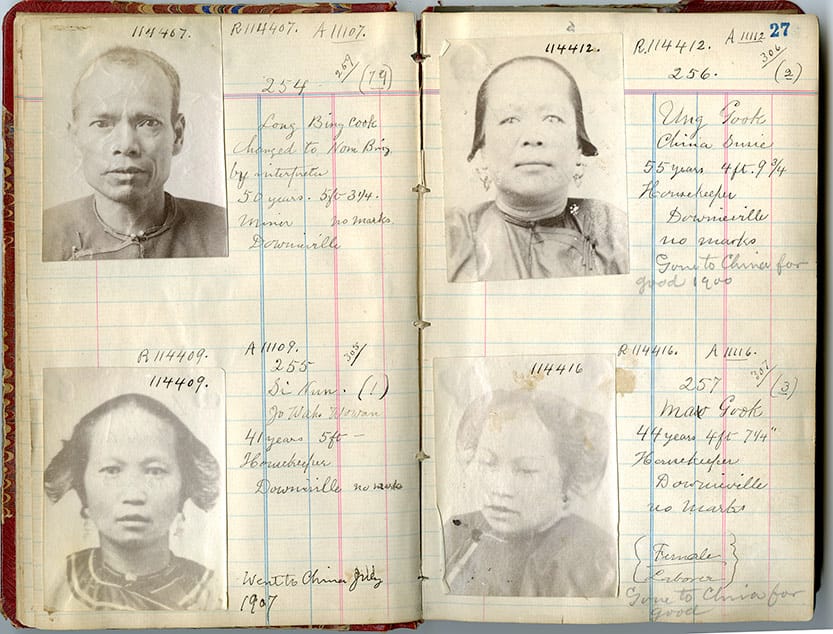 114407.
R114407. A 11107.
254 257/ (19)
Long Bing Cook
Changed to Nom Bing
by interpreter
50 years. 5ft 3 1/4.
Miner no marks.
Downieville
R114409.
114409.
A 11109.
255 305/
Di Nun. (1)
Jo Wahs Wowan
41 years 5ft —
Housekeeper
Downieville no mark
Went to China July
1907
27
114412.
R.114412. A 11112
256. 306/ (2)
Ung Gook
China Susie
55 years 4ft. 9 3/4
Housekeeper
Downieville
no marks
Gone to China for
good 1900
114416
R114416. A 11116.
257 307/ (3)
Maw Gook
44 years 4ft 7 1/4"
Housekeeper
Downieville
no marks
{Female}
{Laborer}
Gone to China for
good